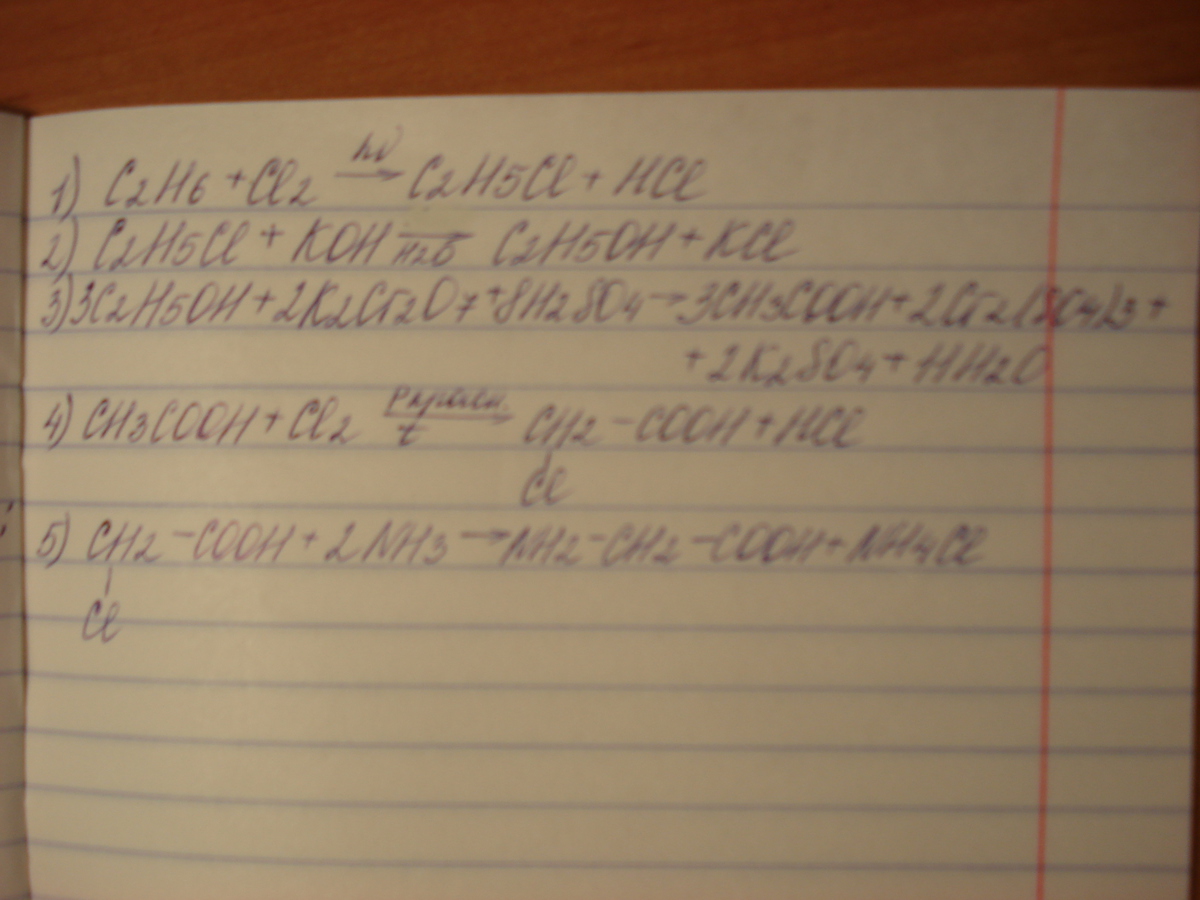 hν
1) C2H6 + Cl2 → C2H5Cl + HCl
2) C2H5Cl + KOH → C2H5OH + KCl
H2O
3) 3C2H5OH + 2K2Cr2O7 + 8H2SO4 → 3CH3COOH + 2Cr2(SO4)3 +
+ 2K2SO4 + 11H2O
P красн.
4) CH3COOH + Cl2 → CH2 - COOH + HCl
t
Cl
5) CH2 - COOH + 2NH3 → NH2 - CH2 - COOH + NH4Cl
Cl